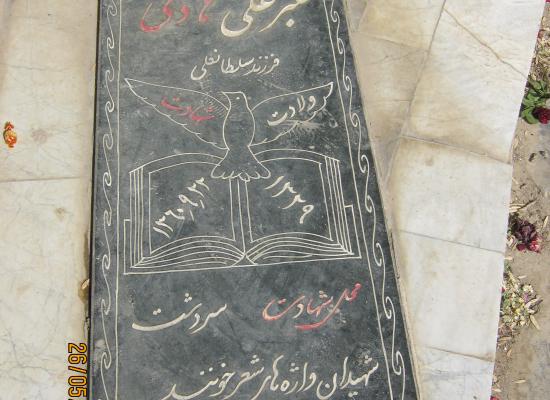 علی هادی
فرزند سلطانعلی
ولادت شهادت
۱۳۶۰٫۹٫۲۲
محل شهادت سردشت
شهیدان واژه های شعر خونند
26/05